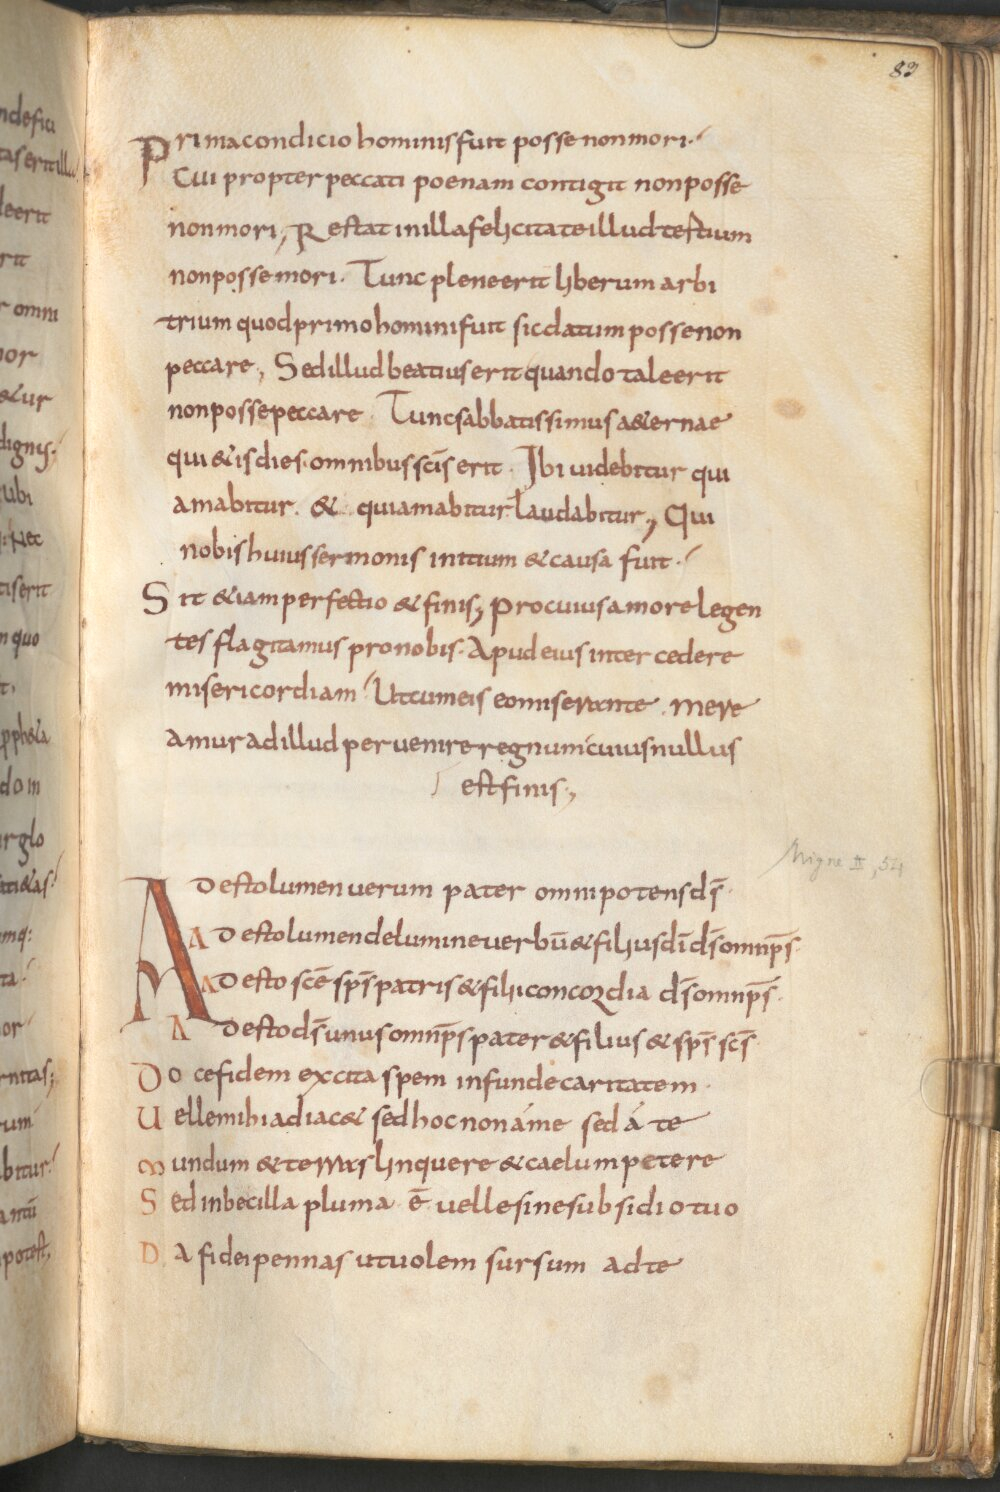 83
Prima condicio hominis fuit posse non mori.
Cui propter peccati poenam contigit non posse
non mori, Restat in illa felicitate illud tertium
non posse mori. Tunc plene erit liberum arbi
trium quod primo homini fuit sic datum posse non
peccare, Sed illud beatius erit quando tale erit
non posse peccare. Tunc sabbatissimus a&ernae
qui&is dies omnibus sc̄is erit. Ibi uidebitur qui
amabitur. & qui amabitur laudabitur, Qui
nobis huius sermonis initium & causa fuit.
Sit &iam perfectio & finis, pro cuius amore legen
tes flagitamus pro nobis. Apud eius intercedere
misericordiam Ut cum eis eo miserante. mere
amur ad illud peruenire regnum cuius nullus
est finis,
Migne II, 54
Adesto lumen uerum pater omnipotens d̄s.
Adesto lumen de lumine uerbū & filius dī d̄s omnip̄s.
Adesto sc̄e sp̄s patris & filii concordia d̄s omnip̄s.
Adesto d̄s unus omnip̄s pater & filius & sp̄s sc̄s
Doce fidem excita spem infunde caritatem.
Uelle mihi adiac& sed hoc non á me sed á te
Mundum & terras linquere & caelum petere
Sed inbecilla pluma ē uelle sine subsidio tuo
Da fidei pennas ut uolem sursum ad te